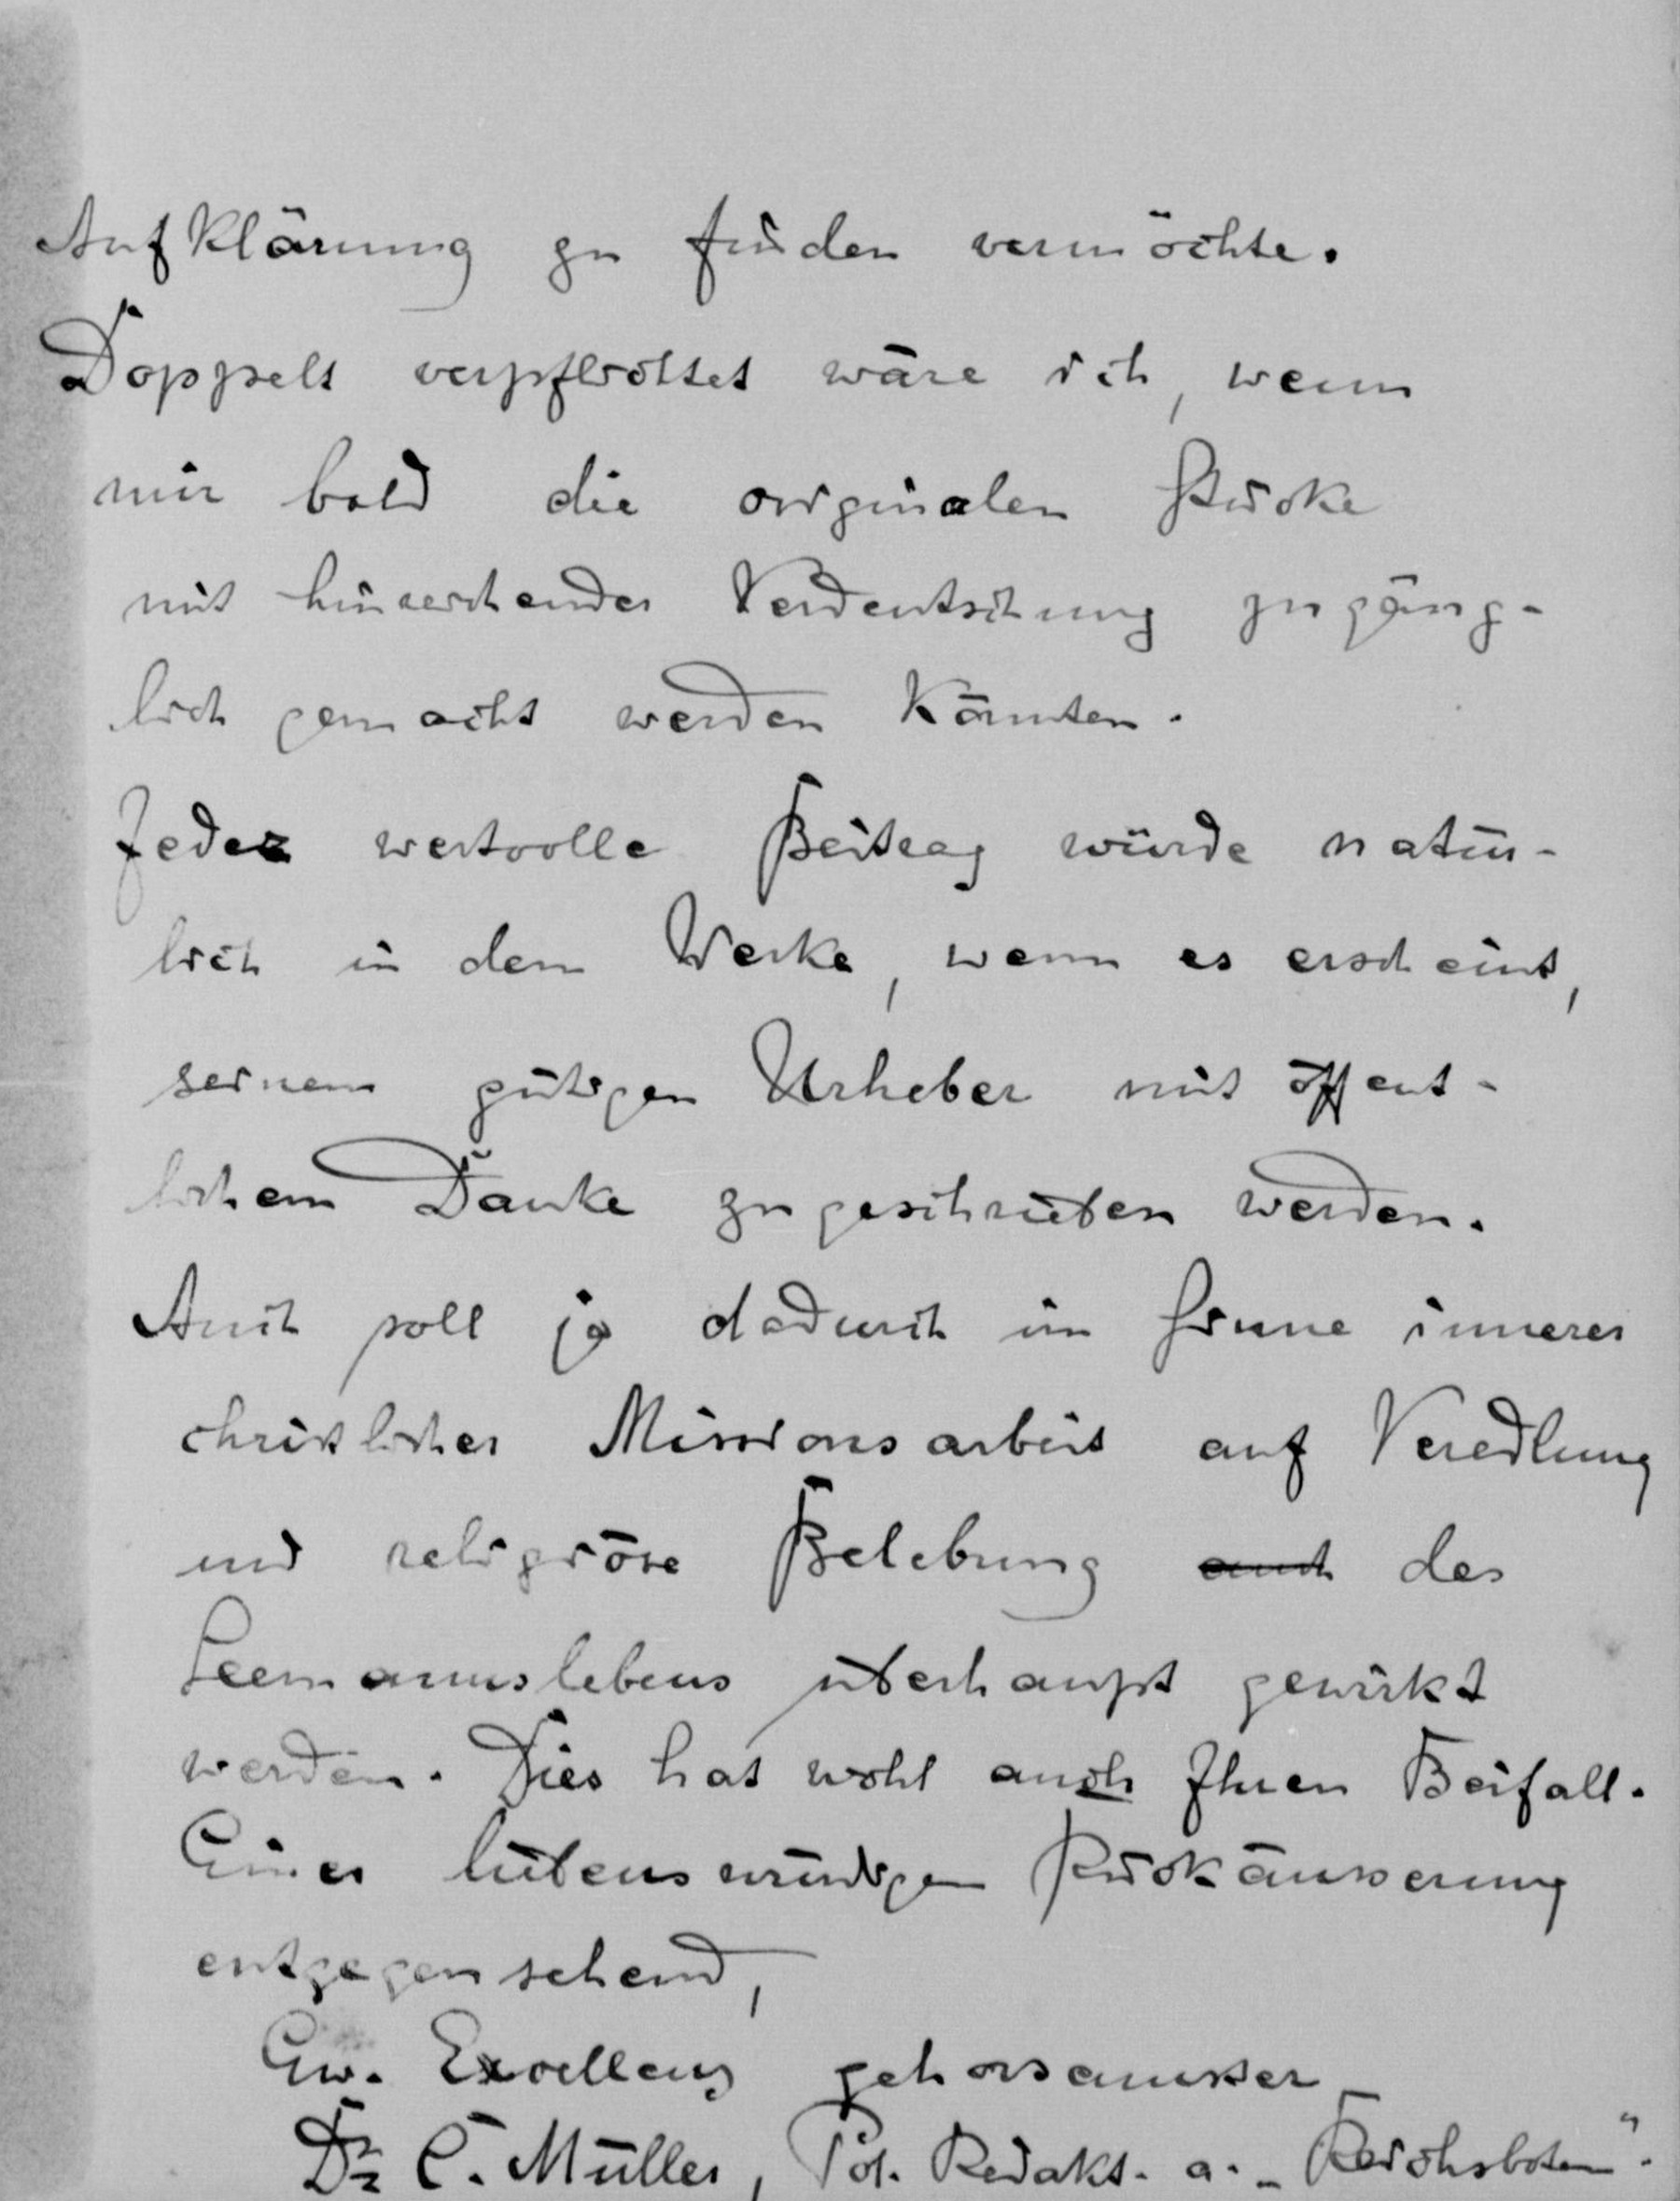 Aufklärung zu finden vermöchte.
Doppelt verpflichtet wäre ich, wenn
mir bald die originalen Stücke
mit hinreichender Verdeutschung zugäng-
lich gemacht werden könnten.
Jeder wertvolle Beitrag würde natür-
lich in dem Werke, wenn es erscheint,
seinem gütigen Urheber mit öffent-
lichem Danke zugeschrieben werden.
Auch soll ja dadurch im Sinne innerer
christlicher Missionsarbeit auf Veredlung
und religiöse Belebung auch des
Seemannslebens überhaupt gewirkt
werden. Dies hat wohl auch Ihren Beifall.
Einer liebenswürdigen Rückäusserung
entgegensehend,
Ew. Excellenz gehorsamster
Dr C. Müller, Pol. Redakt. a. „Reichsboten".